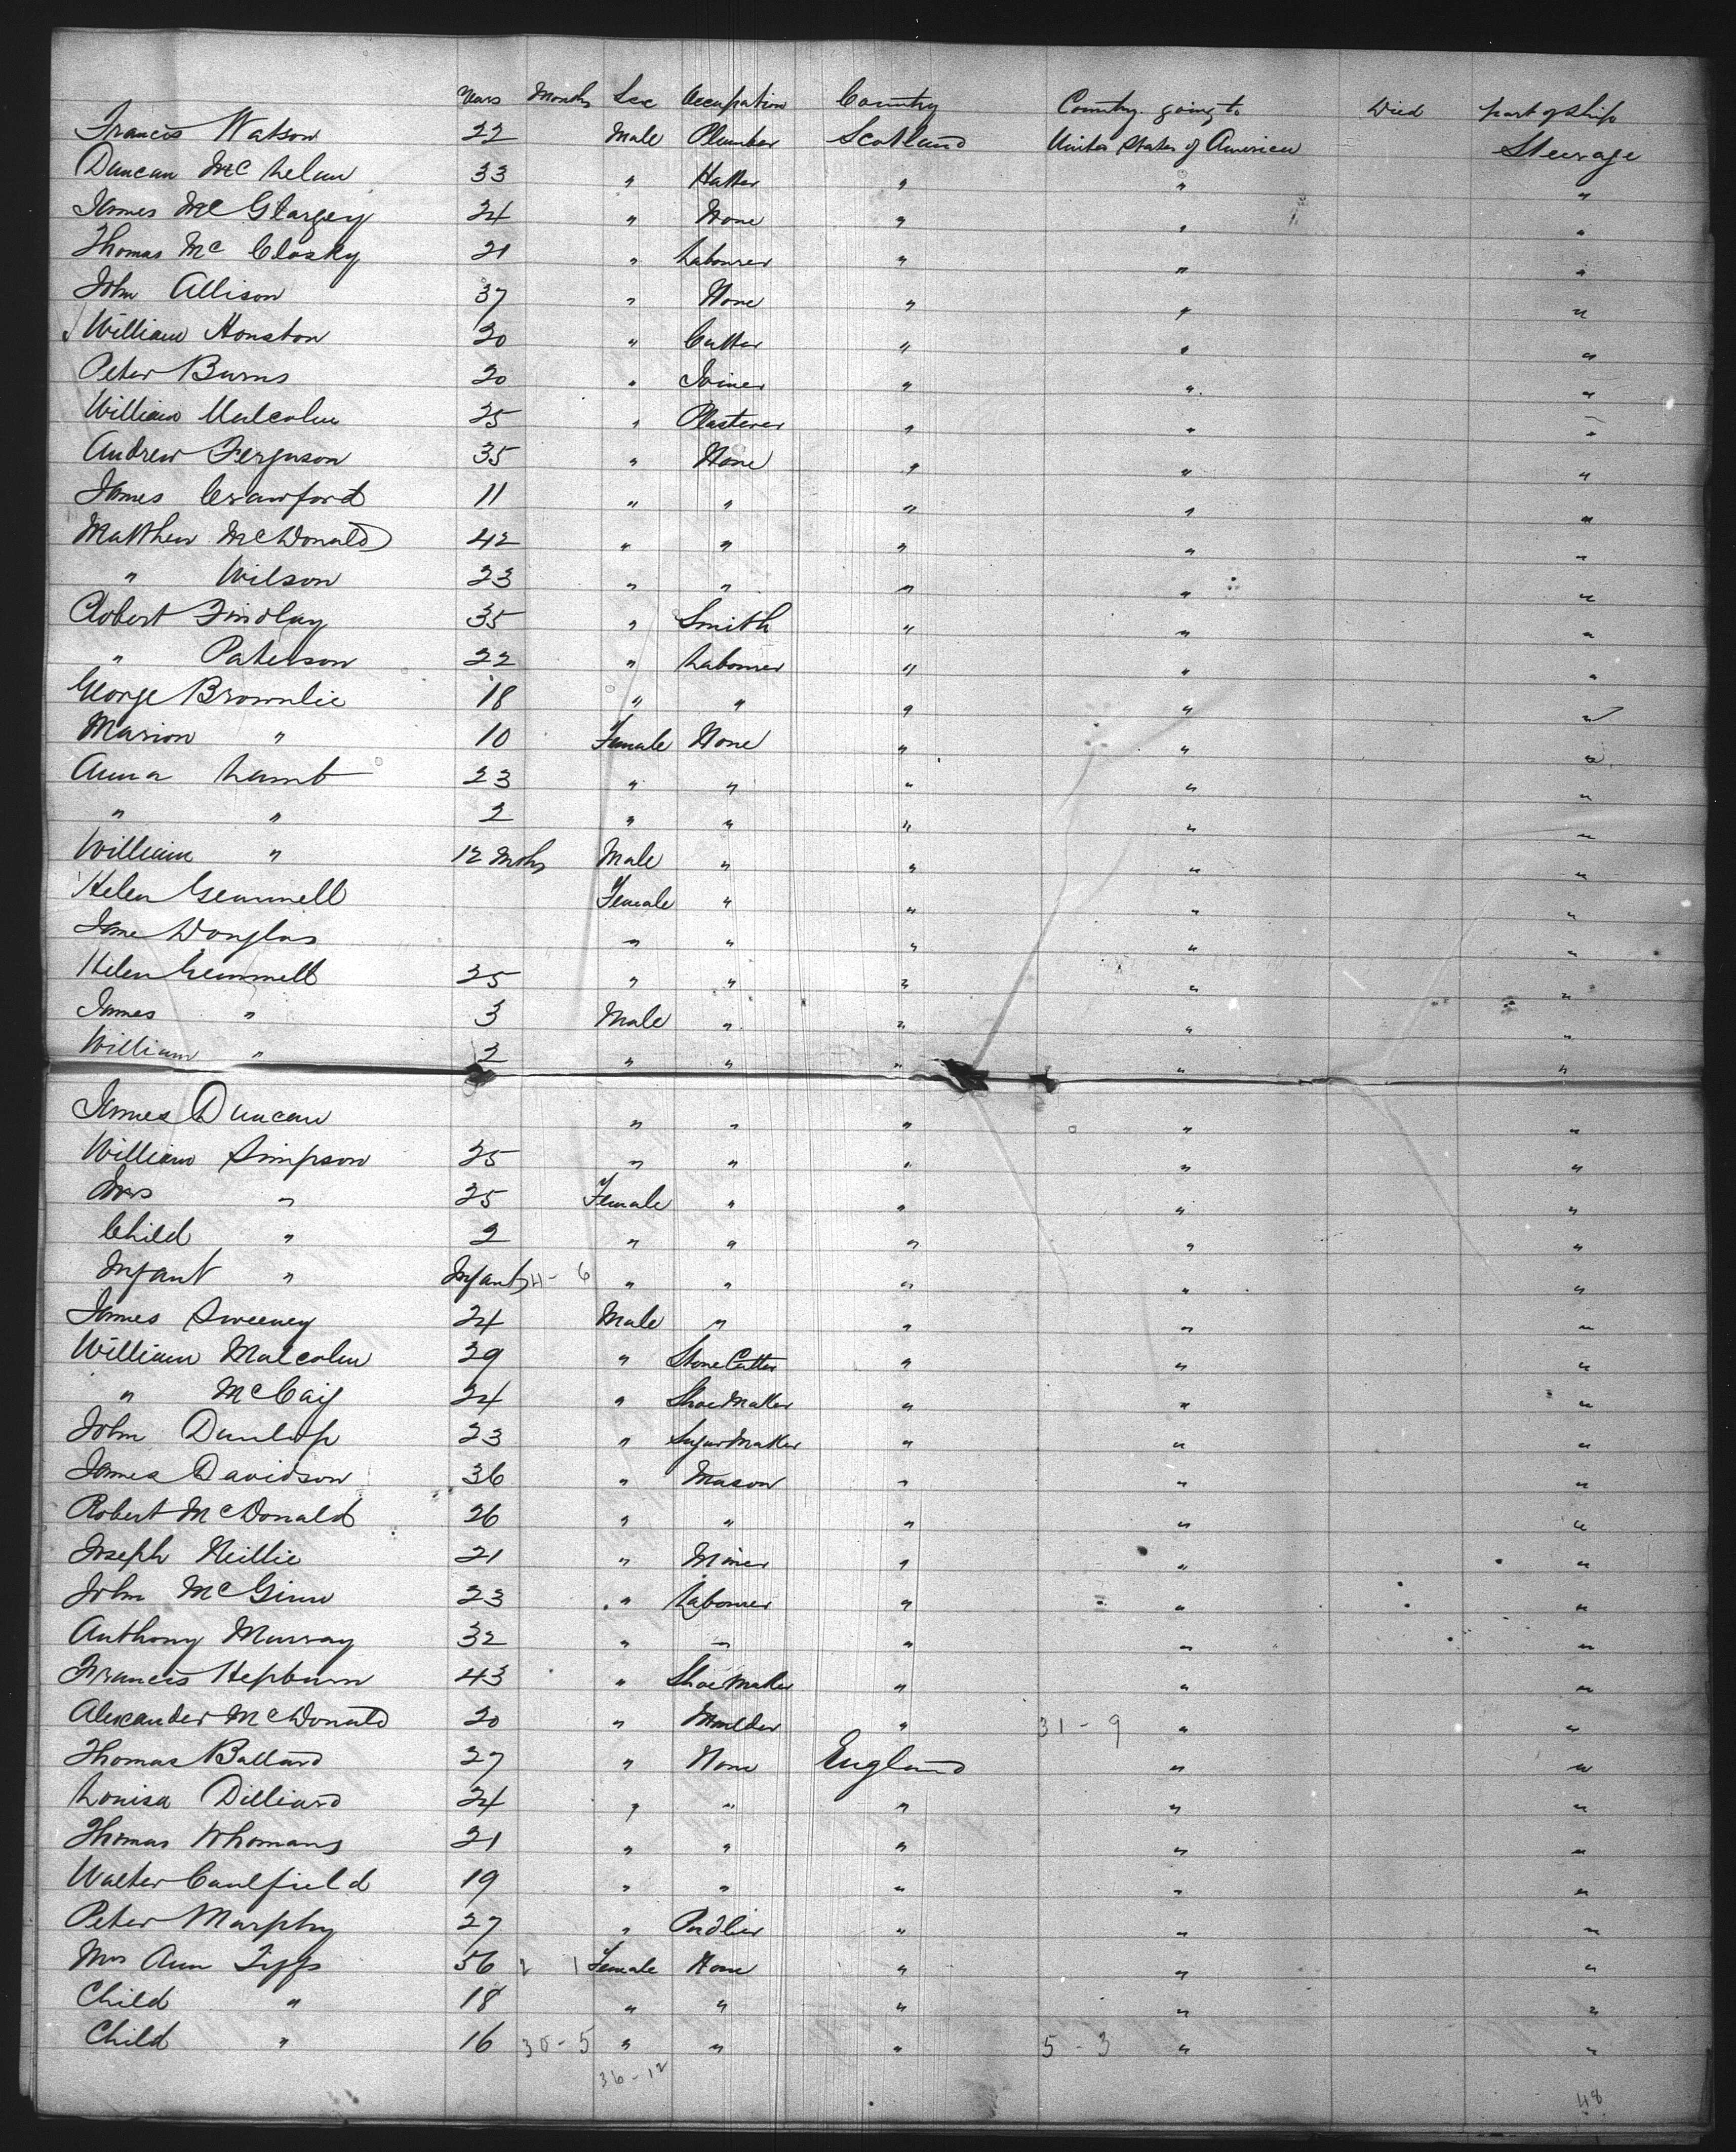 Years Months Sex Occupation Country Country going to Died part of Ship
Francis Watson 22 Male Plumber Scotland United States of America Steerage
Duncan McLelan 33 " Hatter " " "
James McGlargey 24 " None " " "
Thomas McClosky 21 " Labourer " " "
John Allison 37 " None " " "
William Houston 20 " Cutter " " "
Peter Burns 20 " Joiner " " "
William Malcolm 25 " Plasterer " " "
Andrew Ferguson 35 " None " " "
James Crawford 11 " " " " "
Matthew McDonald 42 " " " " "
" Wilson 23 " " " " "
Robert Findlay 35 " Smith " " "
" Paterson 22 " Labourer " " "
George Brownlie 18 " " " " "
Marion " 10 Female None " " "
Anna Lamb 23 " " " " "
" " 2 " " " " "
William " 12 Mths Male " " " "
Helen Gemmell Female " " " "
Jane Douglas " " " " "
Helen Gemmell 25 " " " " "
James " 3 Male " " " "
William " 2 " " " " "
James Duncan " " " " "
William Simpson 25 " " " " "
Mrs " 25 Female " " " "
Child " 2 " " " " "
Infant " Infant 4 - 6 " " " " "
James Sweeney 24 Male " " " "
William Malcolm 29 " Stone Cutter " " "
" McCaig 24 " Shoe Maker " " "
John Dunlop 23 " Sugar Maker " " "
James Davidson 36 " Mason " " "
Robert McDonald 26 " " " " "
Joseph Neillie 21 " Miner " " "
John McGinn 23 " Labourer " " "
Anthony Murray 32 " " " " "
Francis Hepburn 43 " Shoe Maker " " "
Alexander McDonald 20 " Moulder " 31 - 9 " "
Thomas Ballard 27 " None England " "
Louisa Dilliard 24 " " " " "
Thomas Whomans 21 " " " " "
Walter Caulfield 19 " " " " "
Peter Murphy 27 " Pudlier " " "
Mrs Ann Tipps 56 2 1 Female None " " "
Child " 18 " " " " "
Child " 16 30 - 5 " " " 5 - 3 " "
36 - 12
48